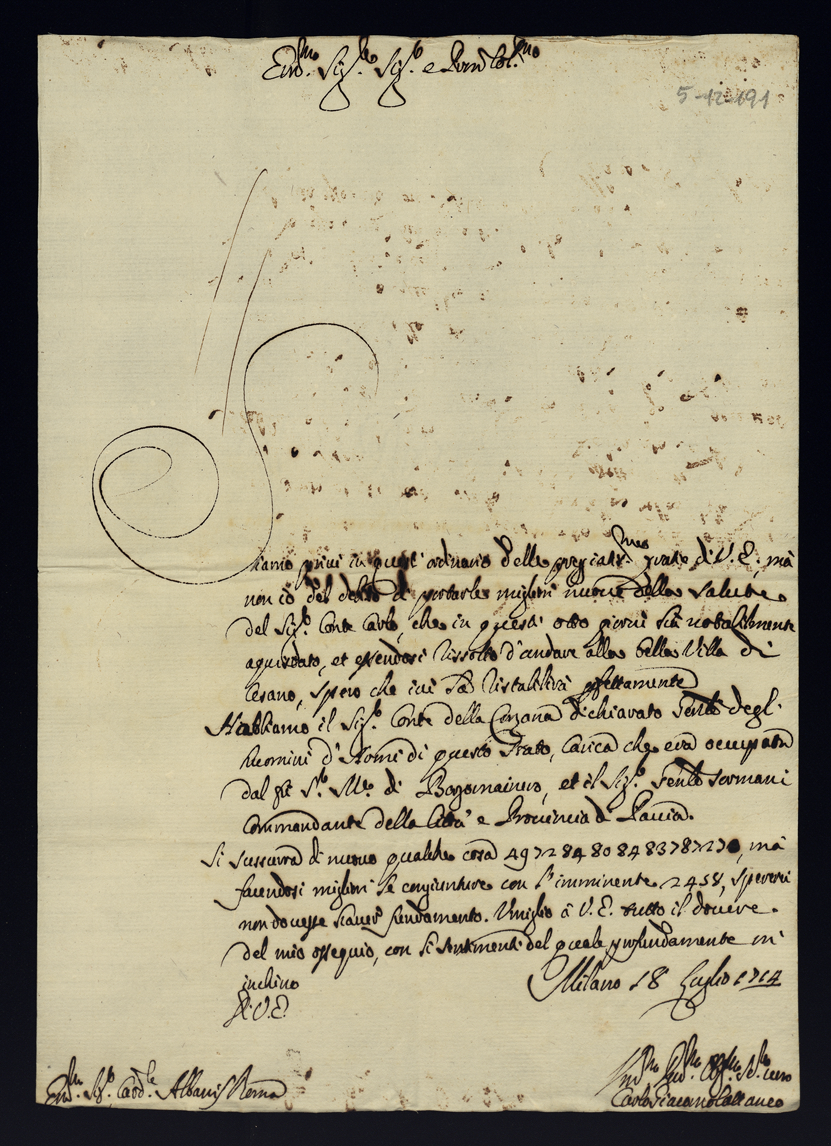 Em.mo Sig.re Sig.r e Pron Col.mo
5-12-191
Siamo privi in quest' ordinario delle pregiat.me grazie di V. E., mà
non io del debito di portarle migliori nuove della salute
del Sig.r Conte Carlo, che in questi otto giorni si è notabilmente
aquistato, et essendosi risolto d'andare alla bella Villa di
Cesano, spero che ivi si ristabilirà perfettamente
Habbiamo il Sig.r Conte della Corzana dichiarato Gen.le degl'
Huomini d'Armi di questo Stato, carica che era occupata
dal Sr. Me. di Borgomainero, et il Sig.r Gen.le Sormani
Commandante della Città e Provincia di Pavia.
Si sussurra di nuovo qualche cosa 497284808483787270, mà
facendosi migliori le congiunture con l'imminente 2458, spererei
non dovesse haver fondamento. Umiglio à V. E. tutto il dovere
del mio ossequio, con li sentimenti del quale profundamente m'
inchino
Di V. E.
Milano 18 Luglio 1714
Em.mo Sig.r Card.le Albani Roma